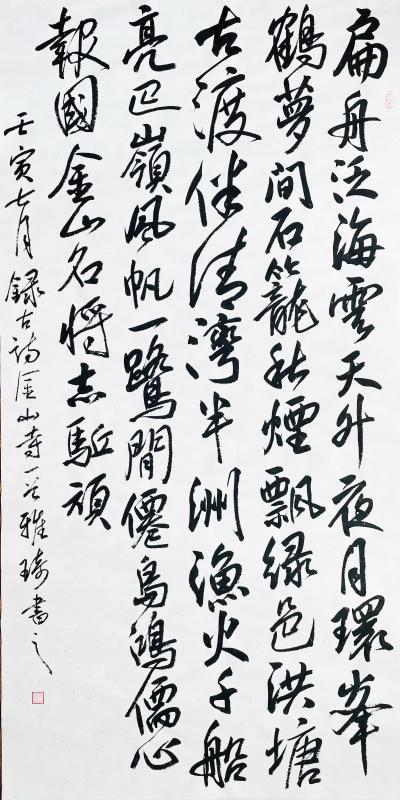 扁舟泛海雲天外夜月環峯
鶴夢间石籠秋煙飄緑邑洪塘
古渡伴清灣半洲漁火千船
亮巴嶺風帆一鷺間僊島鴻儒心
報國金山名將志駈頑
壬寅七月録古詩金山寺一首雅琦書之